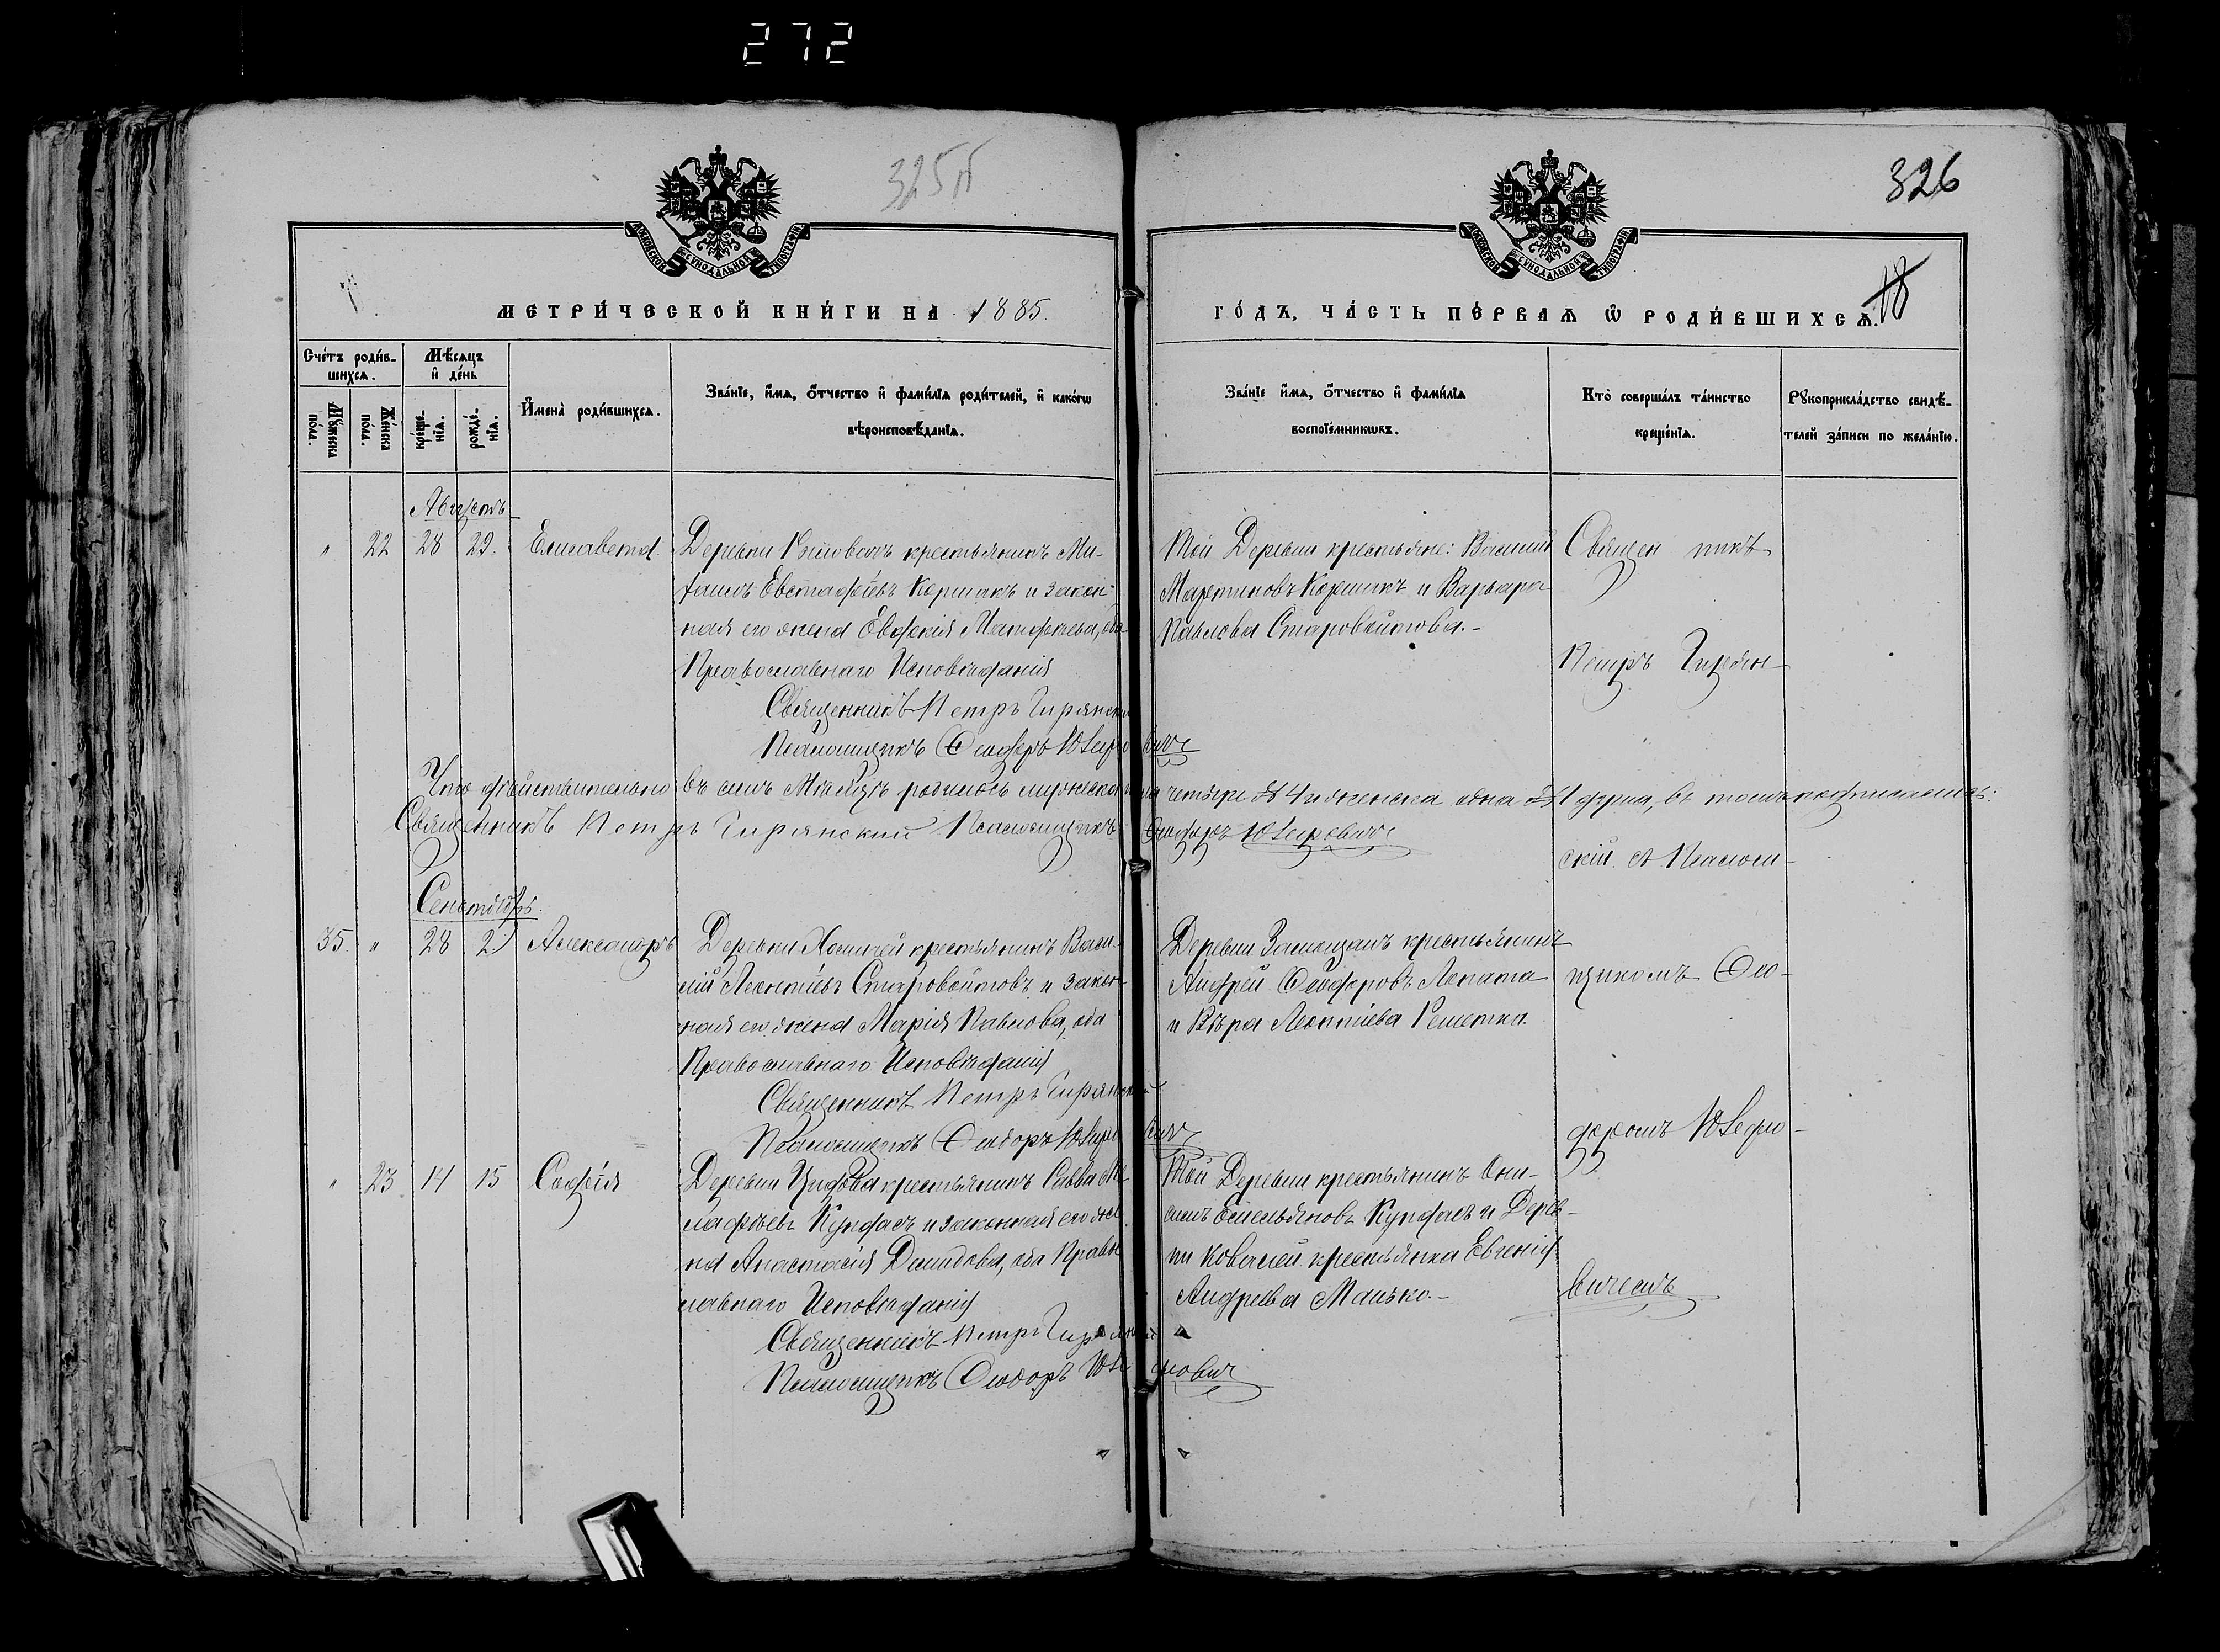 272
325 п
326
18
МОСКОВСКОЙ СѴНОДАЛЬНОЙ ТИПОГРАФІИ
МОСКОВСКОЙ СѴНОДАЛЬНОЙ ТИПОГРАФІИ
МЕТРИ́ЧЕСКОЙ КНИ́ГИ НА 1885.
ГО́ДЪ, ЧА́СТЬ ПЕ́РВАѦ Ѡ РОДИ́ВШИХСѦ.
Сче́тъ роди́в-
шихсѧ.
Мѹжеска по́ла.
Же́нска по́ла.
Мѣ́сѧцъ
и҆ де́нь
креще́-
нїѧ.
рожде́-
нїѧ.
И҆мена̀ роди́вшихсѧ.
Зва́нїе, и҆́мѧ, ѻ҆́тчество и҆ фами́лїѧ роди́телей, и҆ како́гѡ
вѣроисповѣ́данїѧ.
Зва́нїе и҆́мѧ, ѻ҆́тчество и҆ фами́лїѧ
воспрїе́мникѡвъ.
Кто̀ соверша́лъ та́инство
креще́нїѧ.
Рѹкоприкла́дство свидѣ́-
телей за́писи по жела́нїю.
Августъ
" 22 28 29. Елисавета.
Деревни крестьянинъ Ми-
хаилъ Евстафіевъ Коршакъ и закон-
ная его жена Евдокія Матфеева, оба
Православнаго Исповѣданія
Священникъ Петръ Гирянскій
Псаломщикъ Ѳеодоръ Юзефовичъ
Той Деревни крестьяне: Василій
Мартиновъ Коршакъ и Варвара
Павлова Старовойтова.-
Священникъ
Петръ Гирян-
Что дѣйствительно въ семъ Мѣсяцѣ родилось мужеска пола четыре 4 и женска одна 1 душа, въ томъ подписались:
Священникъ Петръ Гирянскій Псаломщикъ Ѳеодоръ Юзефовичъ
скій съ Псалом-
Сентябрь.
35. " 28 29 Александръ
Деревни крестьянинъ Васи-
лій Леонтіевъ Старовойтовъ и закон-
ная его жена Марія Павлова, оба
Православнаго Исповѣданія
Священникъ Петръ Гирянскій
Псаломщикъ Ѳеодоръ Юзефовичъ
Деревни крестьянинъ
Андрей Ѳеодоровъ Лопата
и Вѣра Леонтіева Решетка.
щикомъ Ѳео-
доромъ Юзефо-
" 23 14 15 Софія
Деревни крестьянинъ Савва
и законная его же-
на Анастасія Давидова, оба Правос-
лавнаго Исповѣданія
Священникъ Петръ Гирянскій
Псаломщикъ Ѳеодоръ Юзефовичъ
Той Деревни крестьянинъ Они-
симъ Емельяновъ и Дерев-
ни Ковалей крестьянка Евгенія
Андреева Манько.-
вичемъ